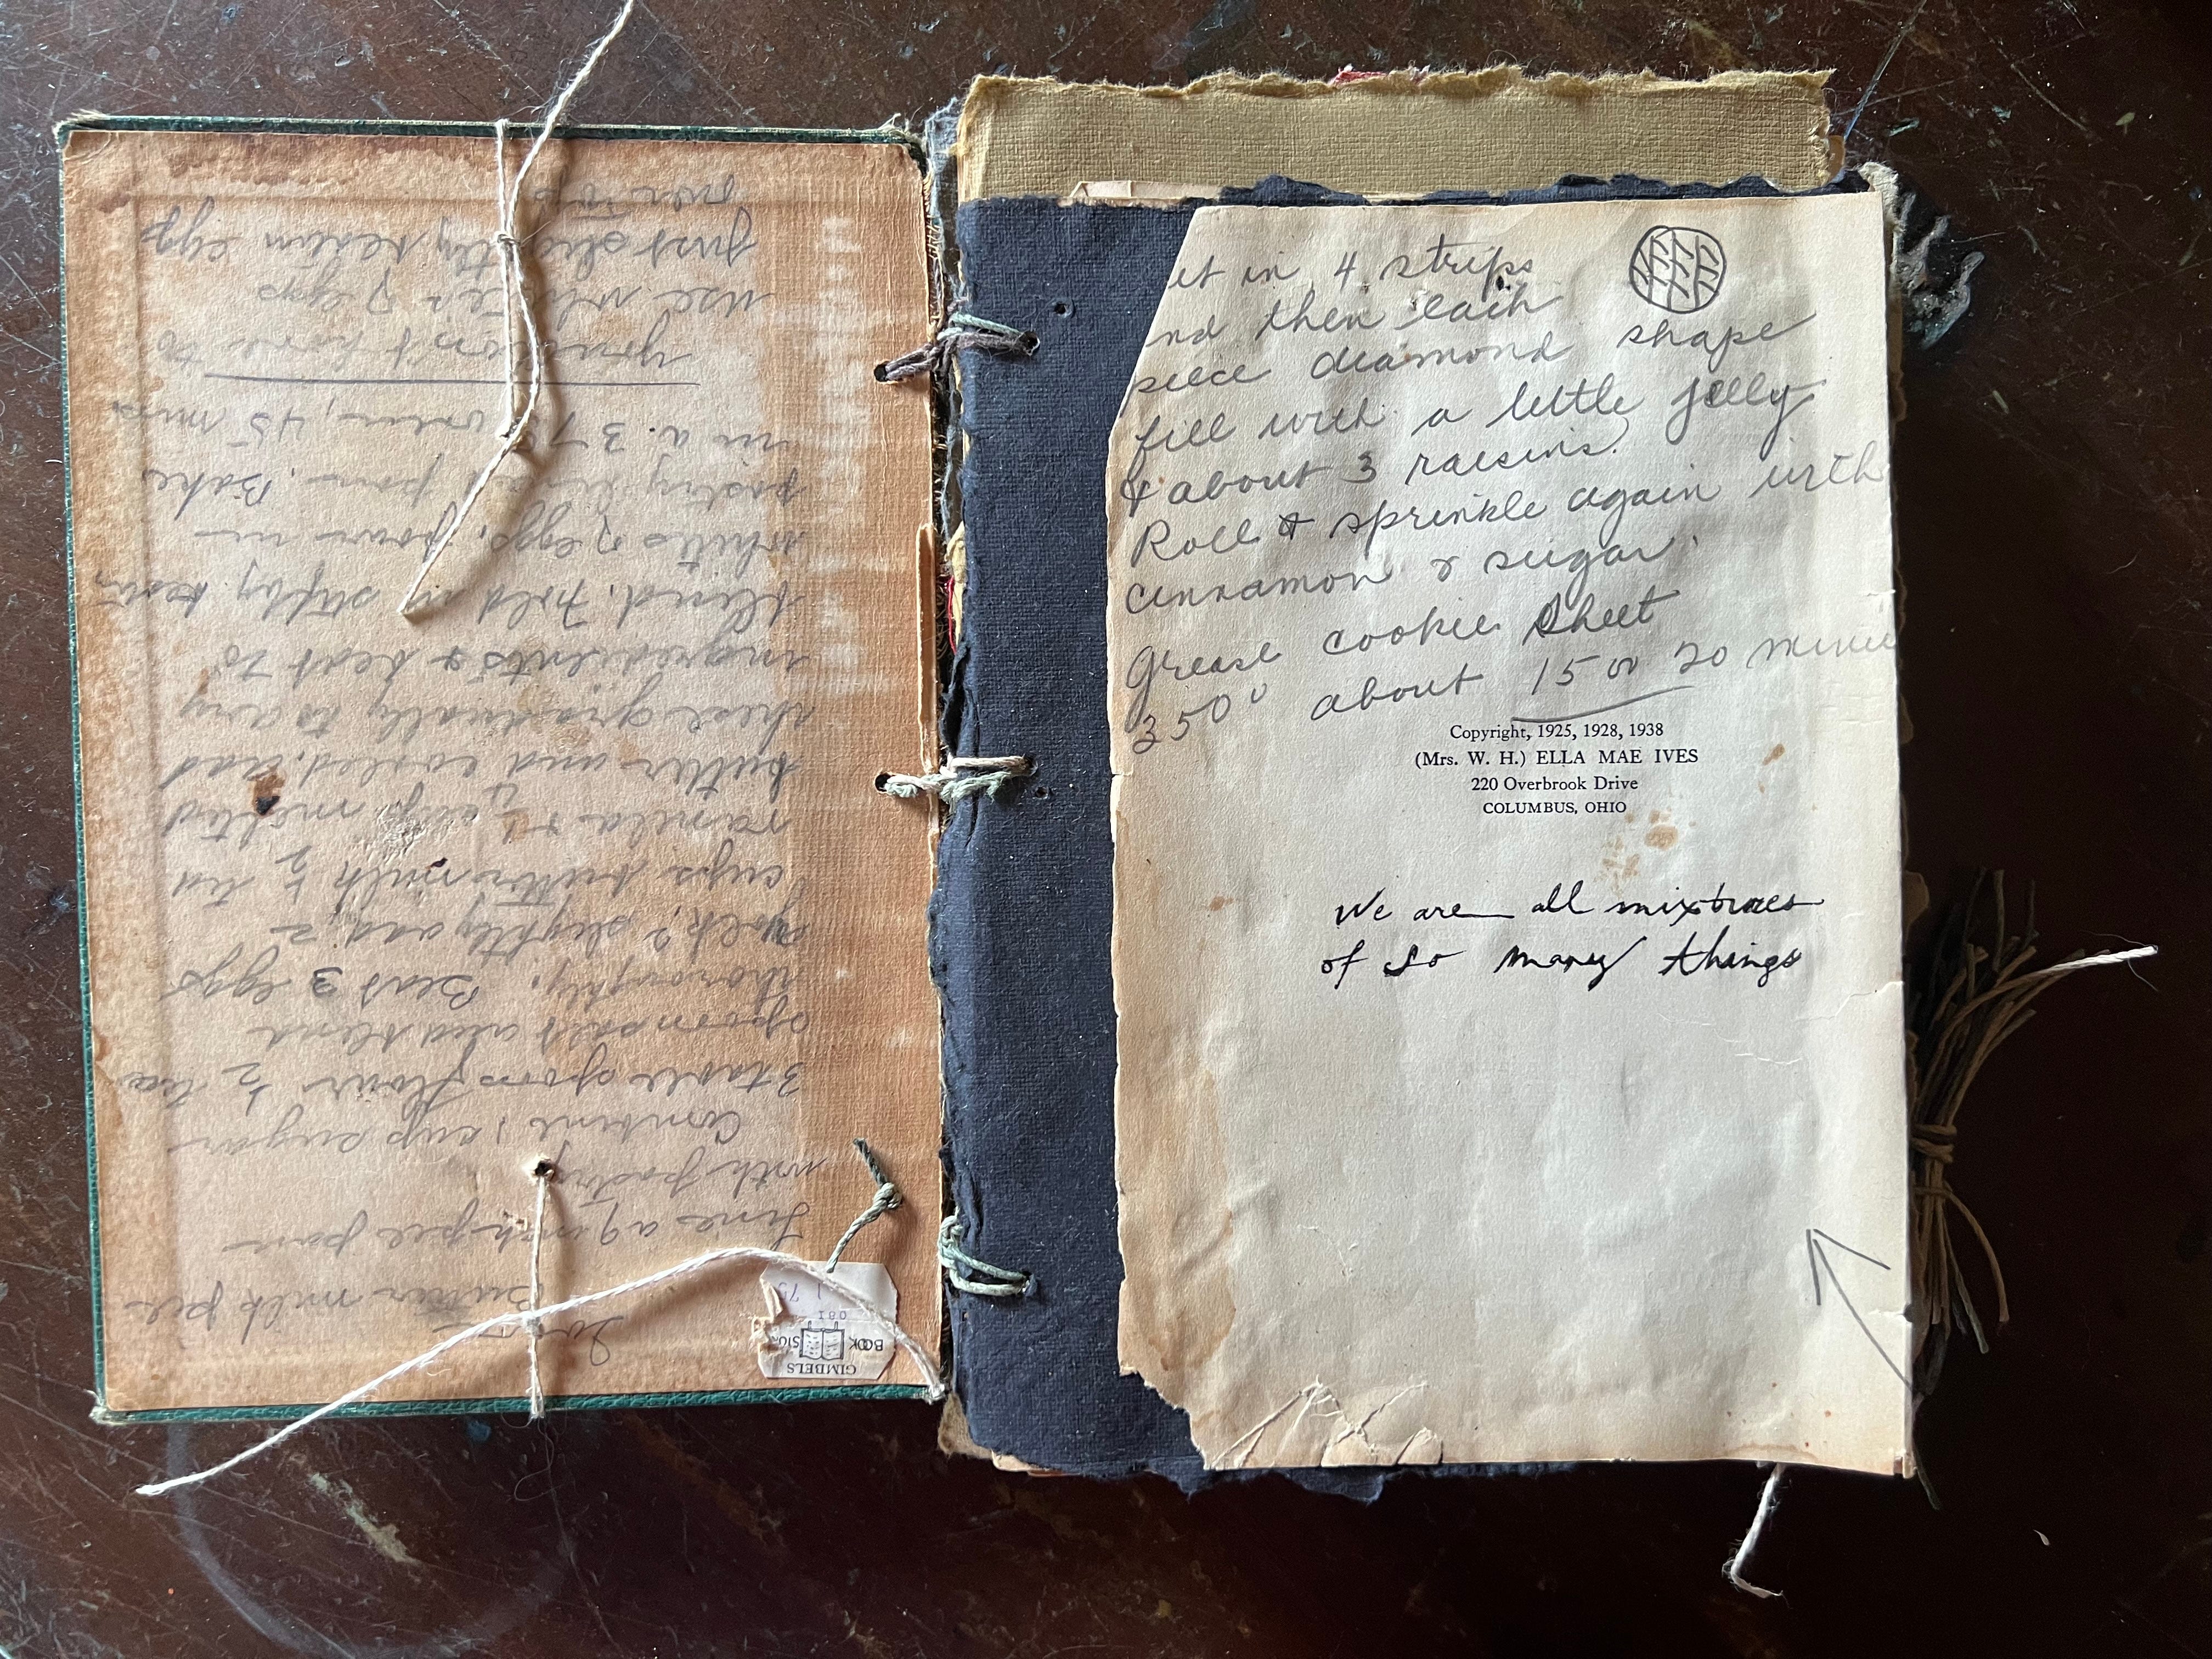 Butter milk pie
Line a 9 inch pie pan
with pastry
Combine 1 cup sugar
3 table spoons flour ½ tea
spoon salt and blend
thoroughly. Beat 3 eggs
yolk's slightly add 2
cups butter milk ½ tea
vanila & ¼ cup melted
butter and cooled. add
these gradually to dry
ingredients & beat to
blend. Fold in stifly beaten
whites of eggs, pour in
pastry lined pan. Bake
in a 375 oven, 45 mins
you don't have to
use white's of eggs
just slightly beaten egg
GIMBELS
BOOK STO
081
1 75
ut in 4 strips
nd then each
peice diamond shape
fill with a little jelly
& about 3 raisins.
Roll & sprinkle again with
cinnamon & sugar.
Grease cookie sheet
350° about 15 or 20 minu
Copyright, 1925, 1928, 1938
(Mrs. W. H.) ELLA MAE IVES
220 Overbrook Drive
COLUMBUS, OHIO
We are all mixtures
of so many things